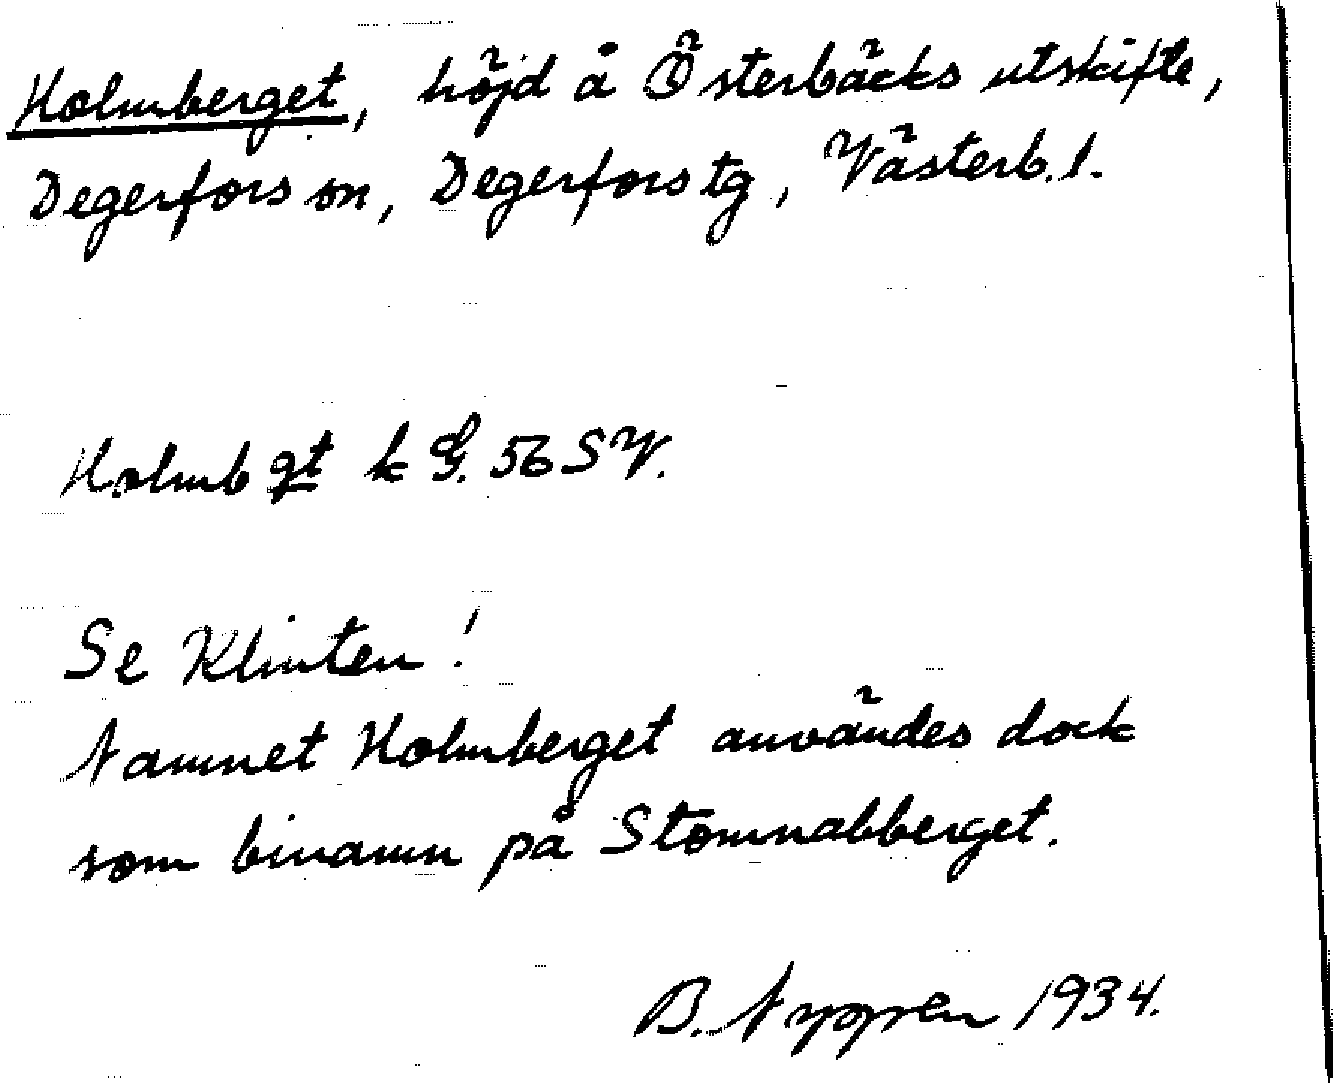 Holmberget, höjd å Österbäcks utskifte,
Degerfors sn, Degerfors tg, Västerb. l.
Holmbgt k G. 56 SV.
Se Klinten!
Namnet Holmberget användes dock
som binamn på Stomnabberget.
B. Nygren 1934.